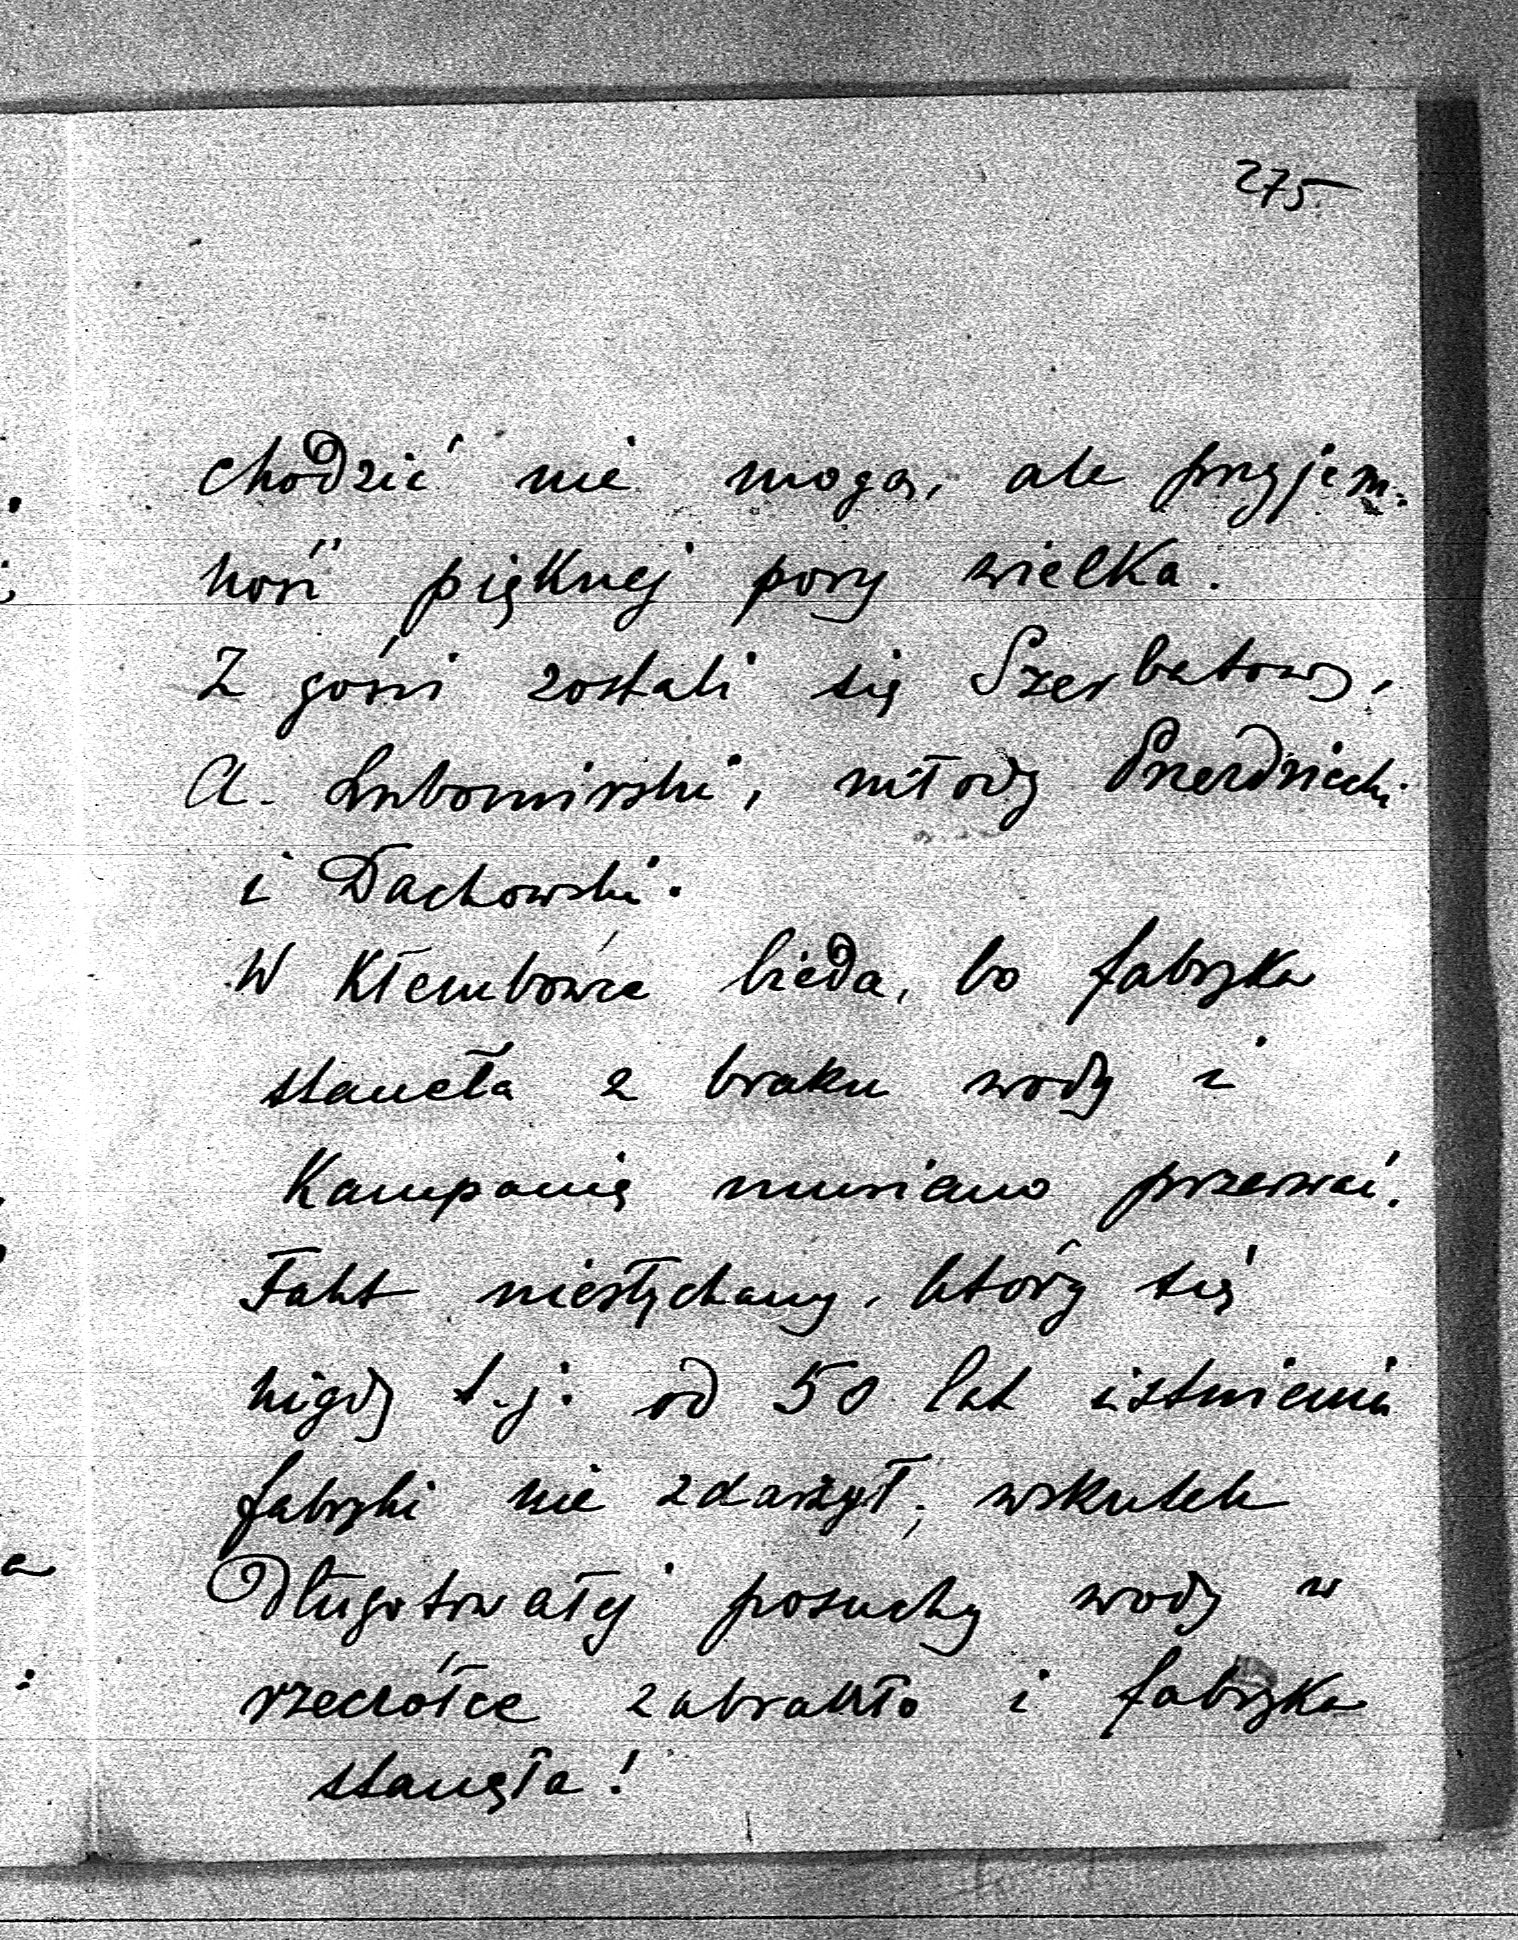 275.
chodzić nie mogą, ale przyjem-
ność pięknej pory wielka.
Z gości zostali się Szerbatowy,
A. Lubomirski, młody Przezdziecki
i Dachowski.
W Kłembówce bieda, bo fabryka
staneła z braku wody i
Kampanię musiano przerwać.
Fakt niesłychany, który się
nigdy t.j. od 50 lat istnienia
fabryki nie zdarżył, wskutek
Długotrwałej posuchy wody w
rzeczółce zabrakło i fabryka
stanęła!